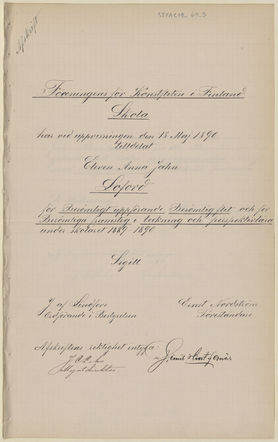 Afskrift
Föreningens för Konstflit i Finland
Skola
har vid uppvisningen den 18 Maj 1890
tilldelat
Eleven Anna Jahn
Loford
för Berömligt uppförande Berömlig flit och för
Berömliga framsteg i teckning och perspektivlära
under skolåret 1889-1890
Sigill
af Lindfors
Ordförande i Bestyrelsen
Ernst Nordström
Föreståndare
Afskriftens riktighet intyga: